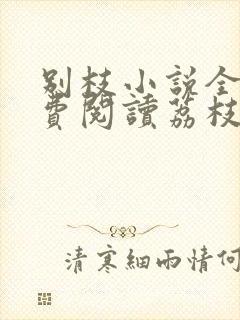 别枝小说全
費閱讀荔枝
清寒細雨情何